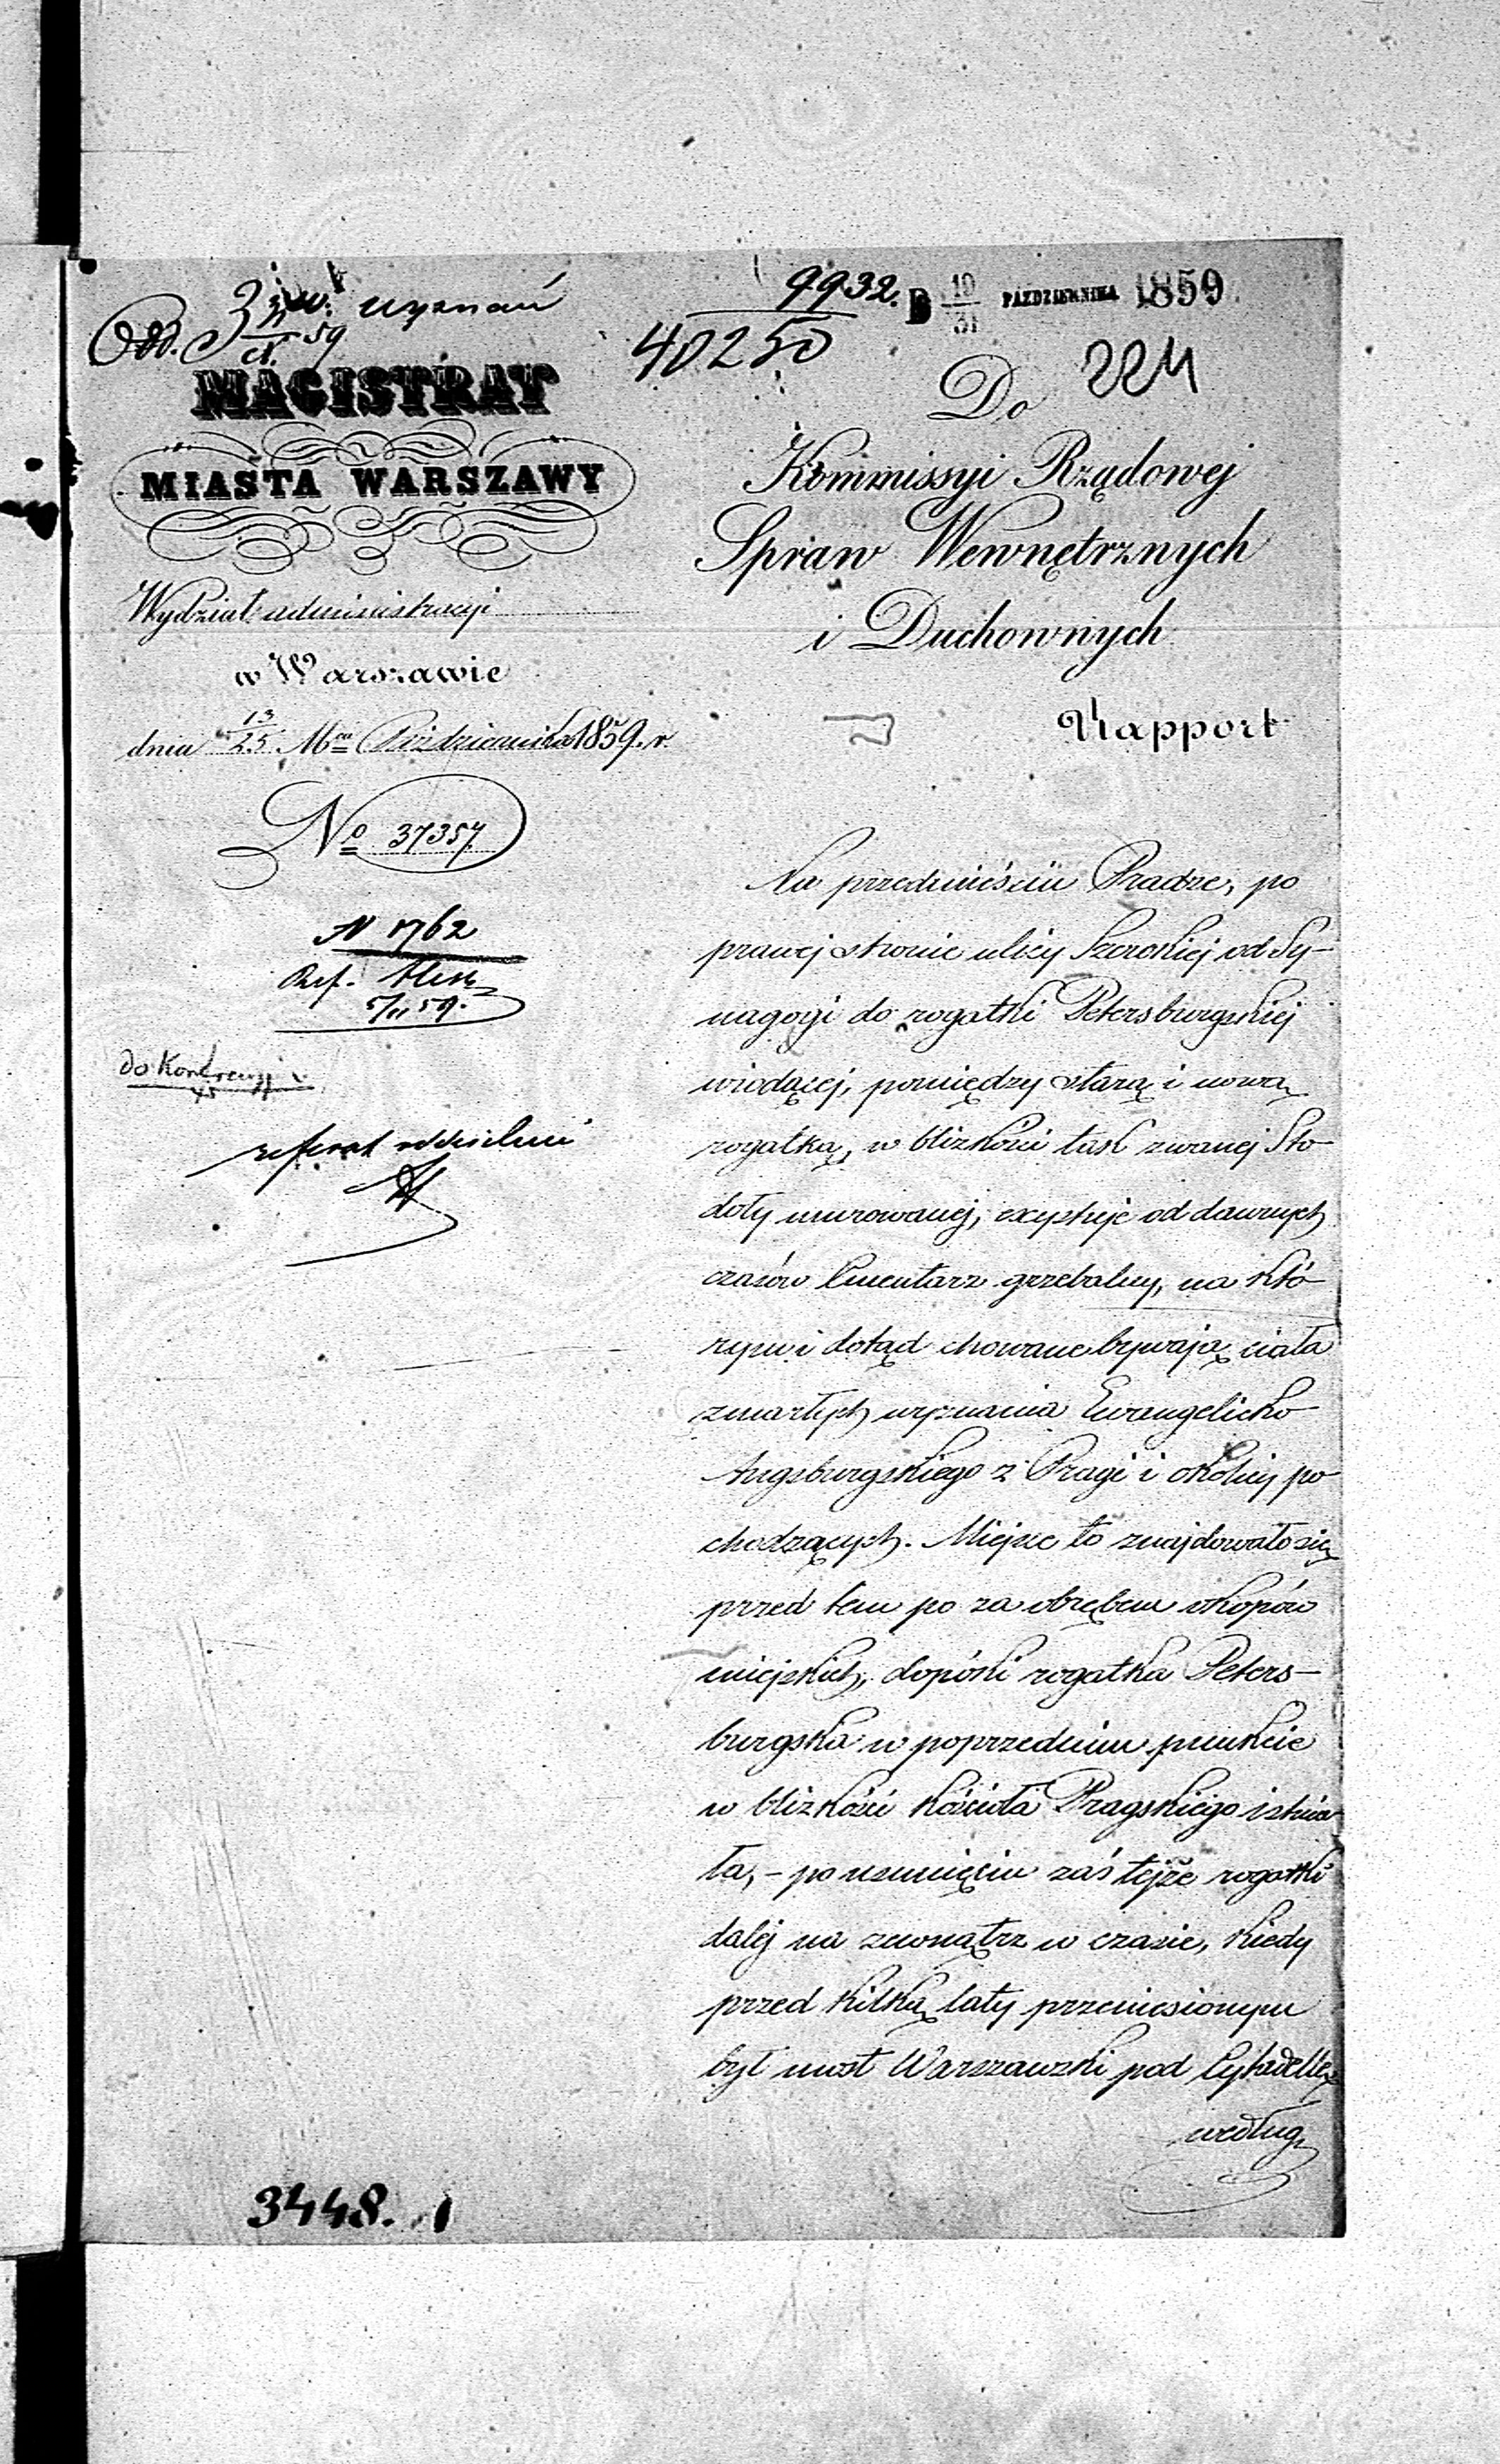 wyznań
9932.
40250
19/31 PAŹDZIERNIKA 1859
221
MAGISTRAT
MIASTA WARSZAWY
Wydział administracyi
w Warszawie
dnia 13/25 Mca Października 1859. r.
No 37357.
N 1762
Ref.
5/11 59.
do
referat oddzielnie
Do
Kommissyi Rządowej
Spraw Wewnętrznych
i Duchownych
Rapport
Na przedmieściu Pradze, po
prawej stronie ulicy Szerokiej od Sy-
nagogi do rogatki Petersburgskiej
wiodącej, pomiędzy starą i nową
rogatką, w blizkości tak zwanej Sto-
doły murowanej, exystuje od dawnych
czasów Cmentarz grzebalny, na któ-
rym i dotąd chowane bywają ciała
zmarłych wyznania Ewangelicko
Augsburgskiego z Pragi i okolicy po-
chodzących. Miejsce to znajdowało się
przed tem po za obrębem okopów
miejskich, dopóki rogatka Peters-
burgska w poprzednim punkcie
w blizkości kościoła Pragskiego istnia-
ła, - po usunięciu zaś tejże rogatki
dalej na zewnątrz w czasie, kiedy
przed kilką laty przeniesionym
był most Warszawski pod Cytadellę
według
3448. 1